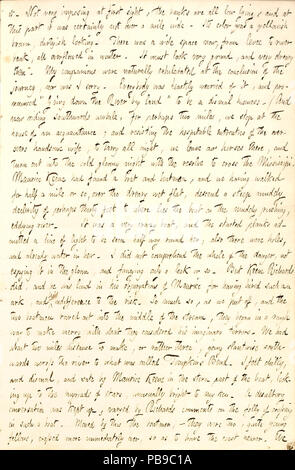 it. Not very imposing at first sight, the banks are all low lying; and at
this part it was certainly not over a mile wide. Its color was a yellowish
brown, dirtyish looking. There was a wide space very from levee to river
bank, all overflowed in winter. It must look very grand, and very dreary
then. My companions were naturally exhilarated at the conclusion of the
journey, nor was I sorry. Everybody was heartily wearied of it, and pro-
nounced "going down the River by land" to be a dismal humbug. And
now riding Southwards awhile, for perhaps two miles, we stop at the
house of an acquaintance; and resisting the hospitable intreaties of the
overseers handsome wife, to tarry all night, we leave our horses there, and
turn out into the cold gloomy night with the resolve to cross the Mississippi.
Maurice Keene had found a boat and boatmen, and we having walked
for half a mile or so, over the dreary wet flat, descend a steep muddy
declivity of perhaps thirty feet to where lies the boat in the muddy rushing,
eddying river. It was a very crazy boat, and the started planks ad-
mitted a line of light to be seen half way round her, also there were holes,
and already water in her. I did not comprehend the whole of the danger, not
espying it in the gloom and fancying only a leak or so. But Keene Richards
did, and he was loud in his objurgations of Maurice for having hired such an
ark, and indifference to the risk. So much so, as we put off, and the
two boatmen rowed out into the middle of the stream, they were in a rough
way to make merry with what they considered his imaginary terrors. We had
about two miles distance to make, or rather three; going slantwise south-
wards across the river to what was called Tompkins Bend. I felt chilly,
and dismal, and sate by Maurice Keene in the stern part of the boat, look-
ing up to the myriads of stars, unusually bright to my ken. A desultory
conversation was kept up, varied by Richards comments on the folly of risking
in such a boat. Moved by this the boatmen - they were two, quite young
fellows, rigked more immoderately